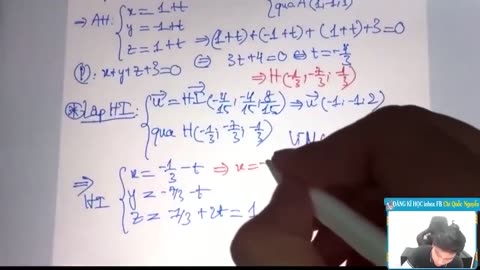 ⇒ AH: { x = 1+t
y = -1+t
z = 1+t
qua A(1;-1;1)
⇒ (1+t)+(-1+t)+(1+t)+3=0
(P): x+y+z+3=0 ⇔ 3t+4=0 ⇔ t=-4/3
⇒ H(-1/3; -7/3; -1/3)
* Lập HI: { u⃗ = HI⃗ (-4/15; -4/15; 8/15) ⇒ u⃗ (-1; -1; 2)
qua H(-1/3; -7/3; -1/3)
⇒ HI { x = -1/3 - t ⇒ x = -
y = -7/3 - t
z = -1/3 + 2t = 1
ĐĂNG KÍ HỌC inbox FB Chí Quốc Nguyễn